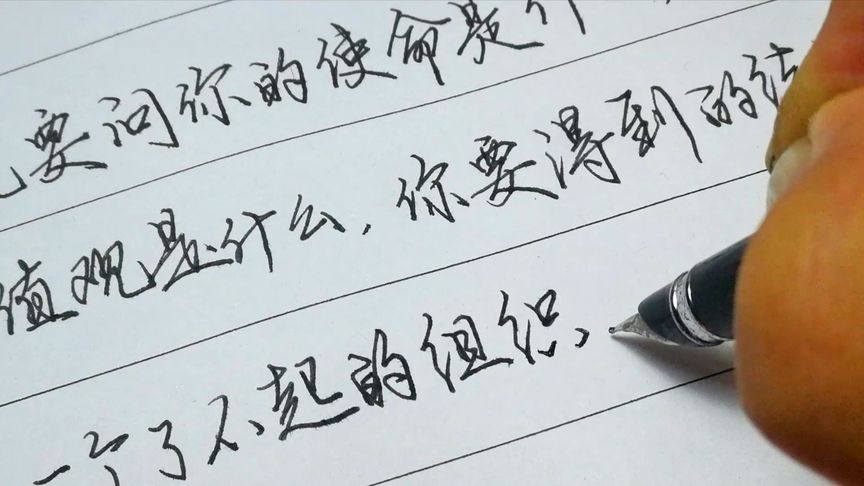 要问你的使命是什
值观是什么，你要得到的结
一个了不起的组织，